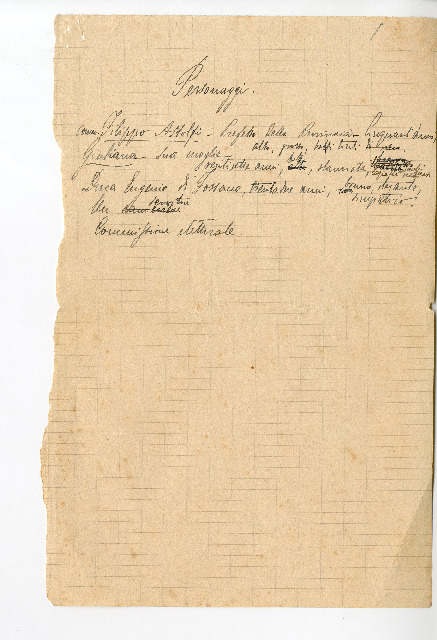 1
Personaggi.
Comm. Filippo Astolfi - Prefetto della Provincia - Cinquant'anni,
alto, grosso, folti
Giuliana - Sua moglie - ventisette anni, slanciata,
Duca Eugenio di Fossano, trentadue anni, bruno, elegante,
simpatico.
Un servitore
Commissione elettorale.